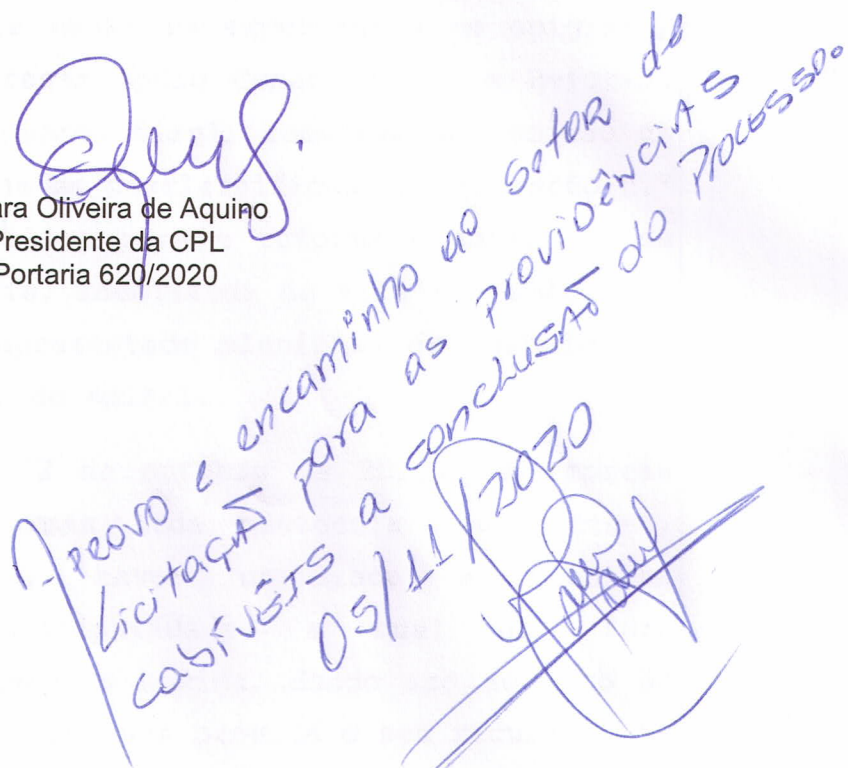 ara Oliveira de Aquino
Presidente da CPL
Portaria 620/2020
Aprovo e encaminho ao setor de
licitação para as providências
cabíveis a conclusão do processo.
05/11/2020